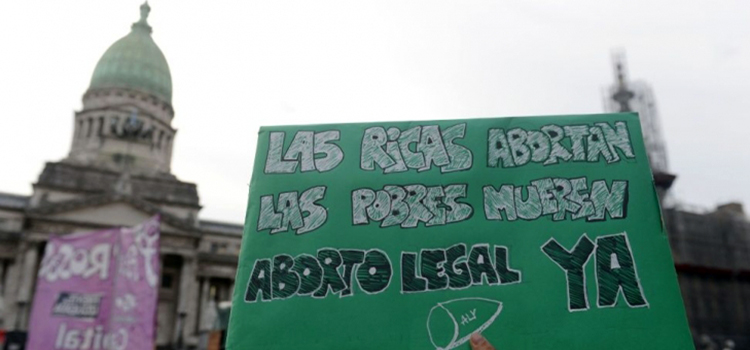 LAS RICAS ABORTAN
LAS POBRES MUEREN
ABORTO LEGAL YA
ALY